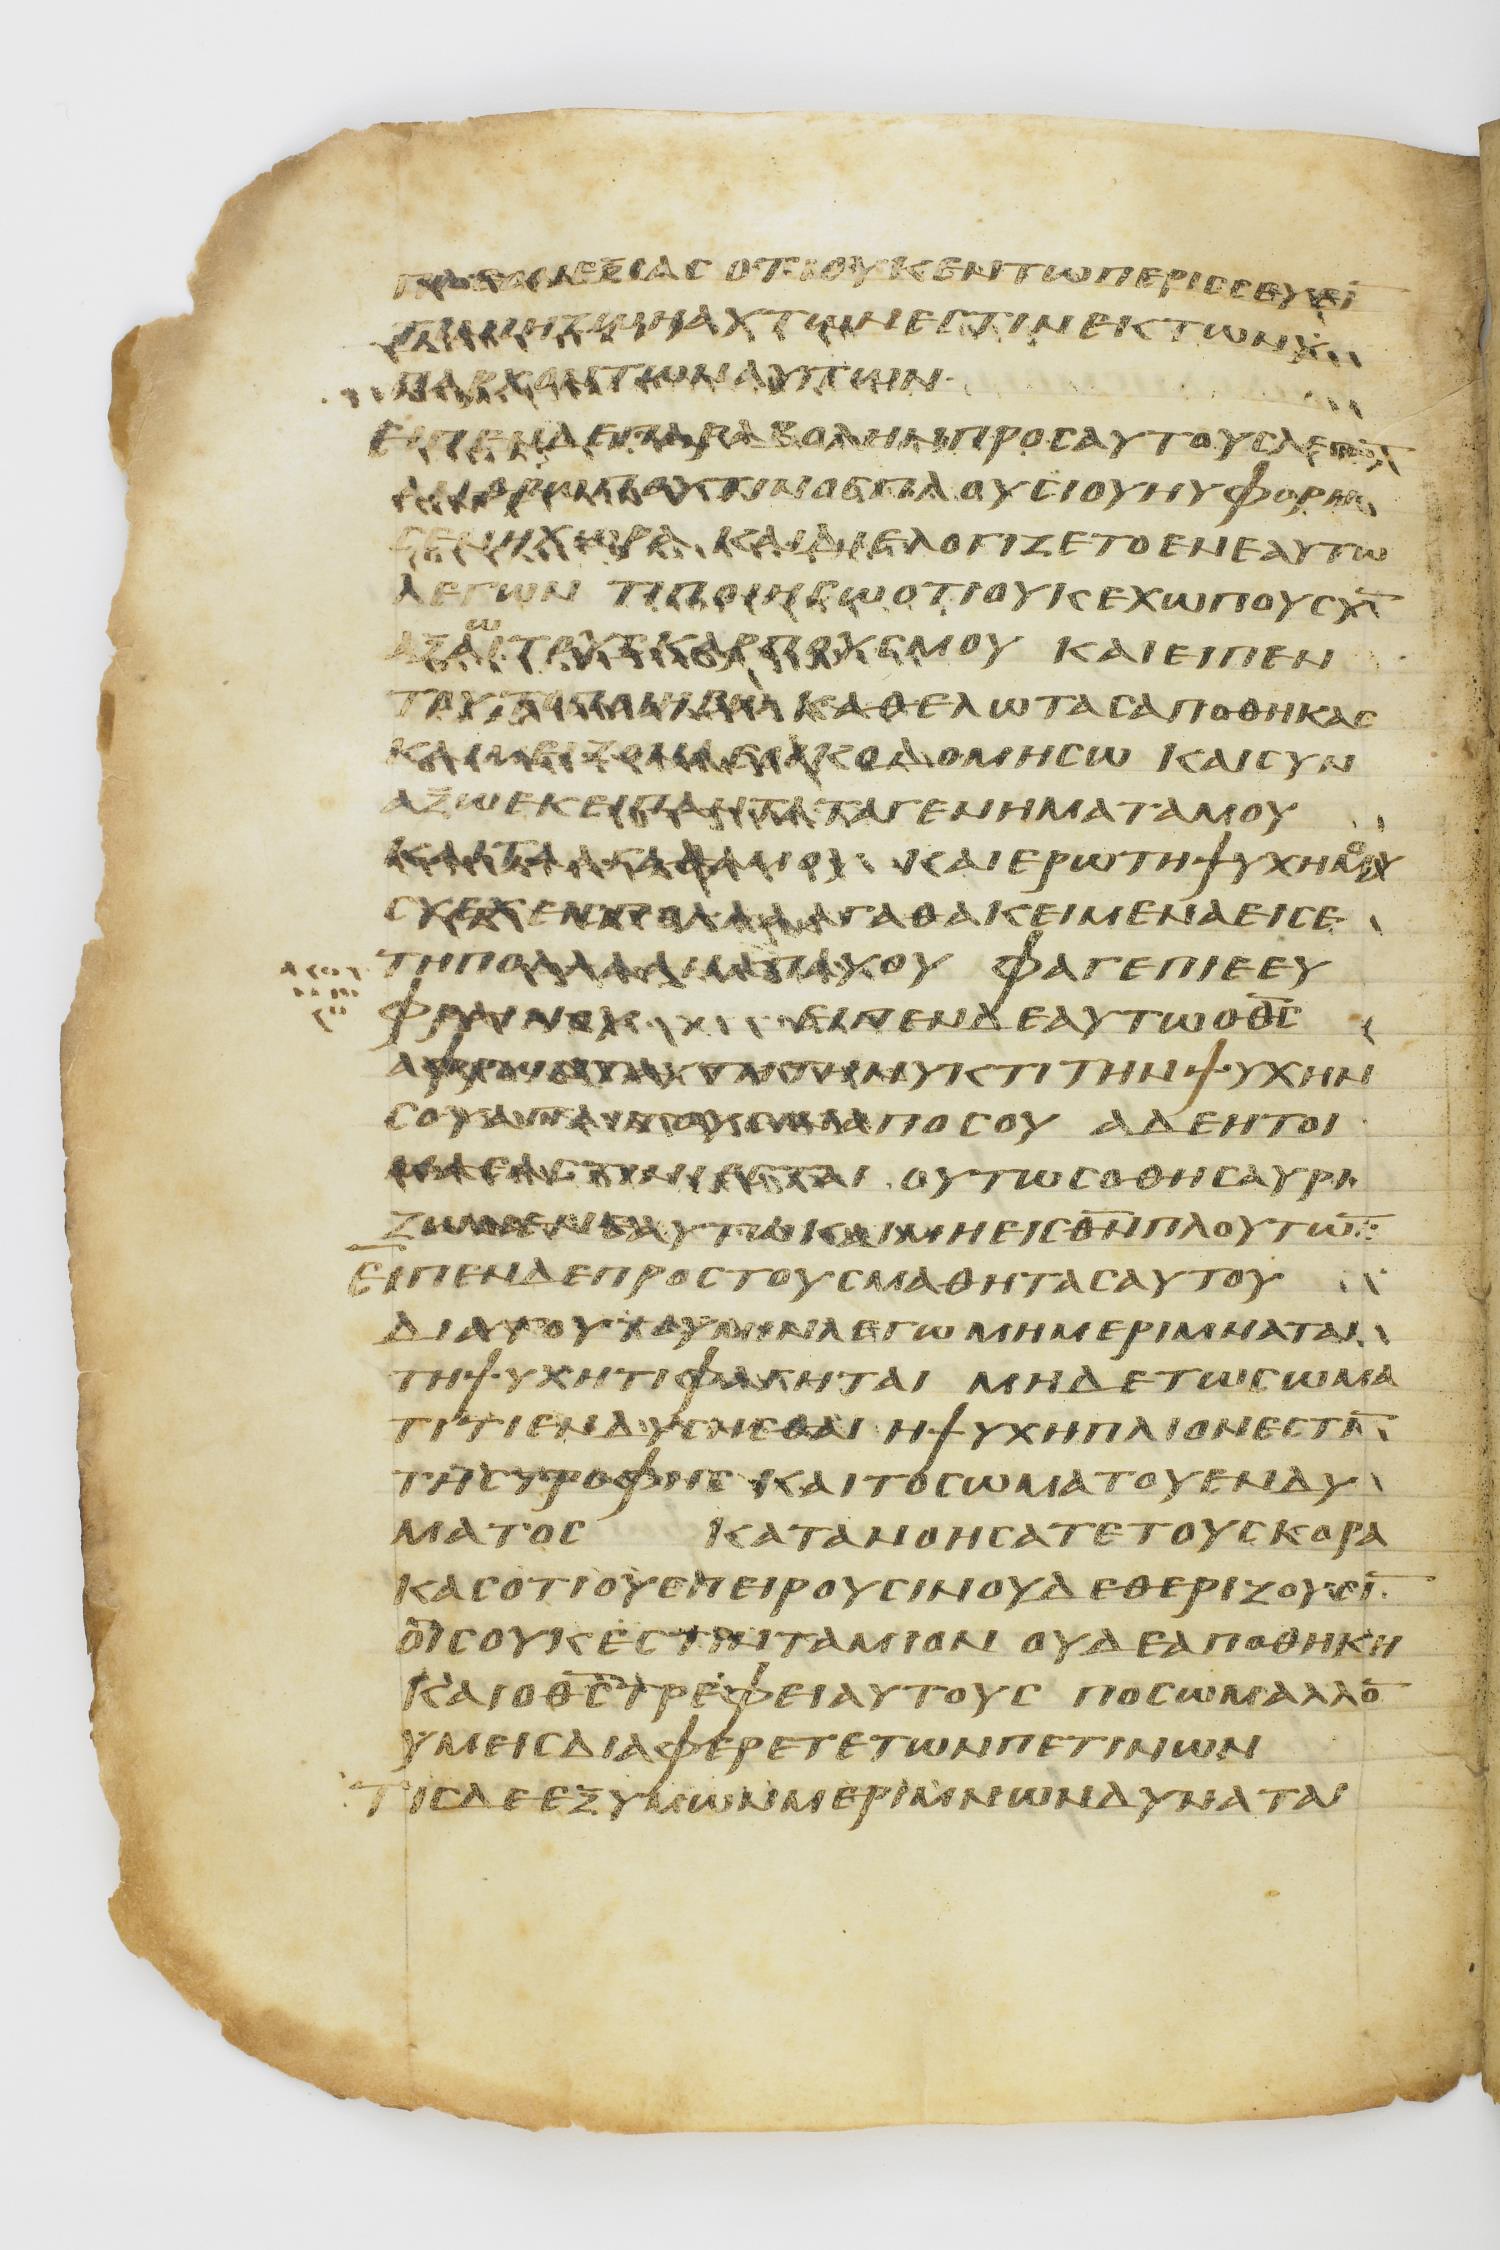 πλεονεξιας οτι ουκ εν τω περισσευει̅
τινι η ζωη αυτων εστιν εκ των υ
παρχοντων αυτων
ειπεν δε παραβολην προς αυτους λεγω̅
ανθρωπου τινος πλουσιου ηυφορη
σεν η χωρα και διελογιζετο εν εαυτω
λεγων τι ποιησω οτι ουκ εχω που συ̅
αξω τους καρπους μου και ειπεν
τουτο ποιησω καθελω τας αποθηκας
και μειζονας οικοδομησω και συν
αξω εκει παντα τα γενηματα μου
και τα αγαθα μου και ερω τη ψυχη μου
αγαθα κειμενα εις ε
τη πολλα αναπαυου φαγε πιε ευ
φραινου ειπεν δε αυτω ο θ̅ς̅
αφρων ταυτη τη νυκτι την ψυχην
σου απαιτουσιν απο σου α δε ητοι
μασας τινι εσται ουτως ο θησαυρι
ζων εαυτω και μη εις θ̅ν̅ πλουτω̅
ειπεν δε προς τους μαθητας αυτου
δια τουτο υμιν λεγω μη μεριμνατai
τη ψυχη τι φαγηται μηδε τω σωμα
τι τι ενδυσησθαι η ψυχη πλιον εστι̅
της τροφης και το σωμα του ενδυ
ματος κατανοησατε τους κορα
κας οτι ου σπειρουσιν ουδε θεριζουσι̅
οις ουκ εστιν ταμιον ουδε αποθηκη
και ο θ̅ς̅ τρεφει αυτους ποσω μαλλο̅
υμεις διαφερετε των πετινων
τις δε εξ υμων μεριμνων δυναται